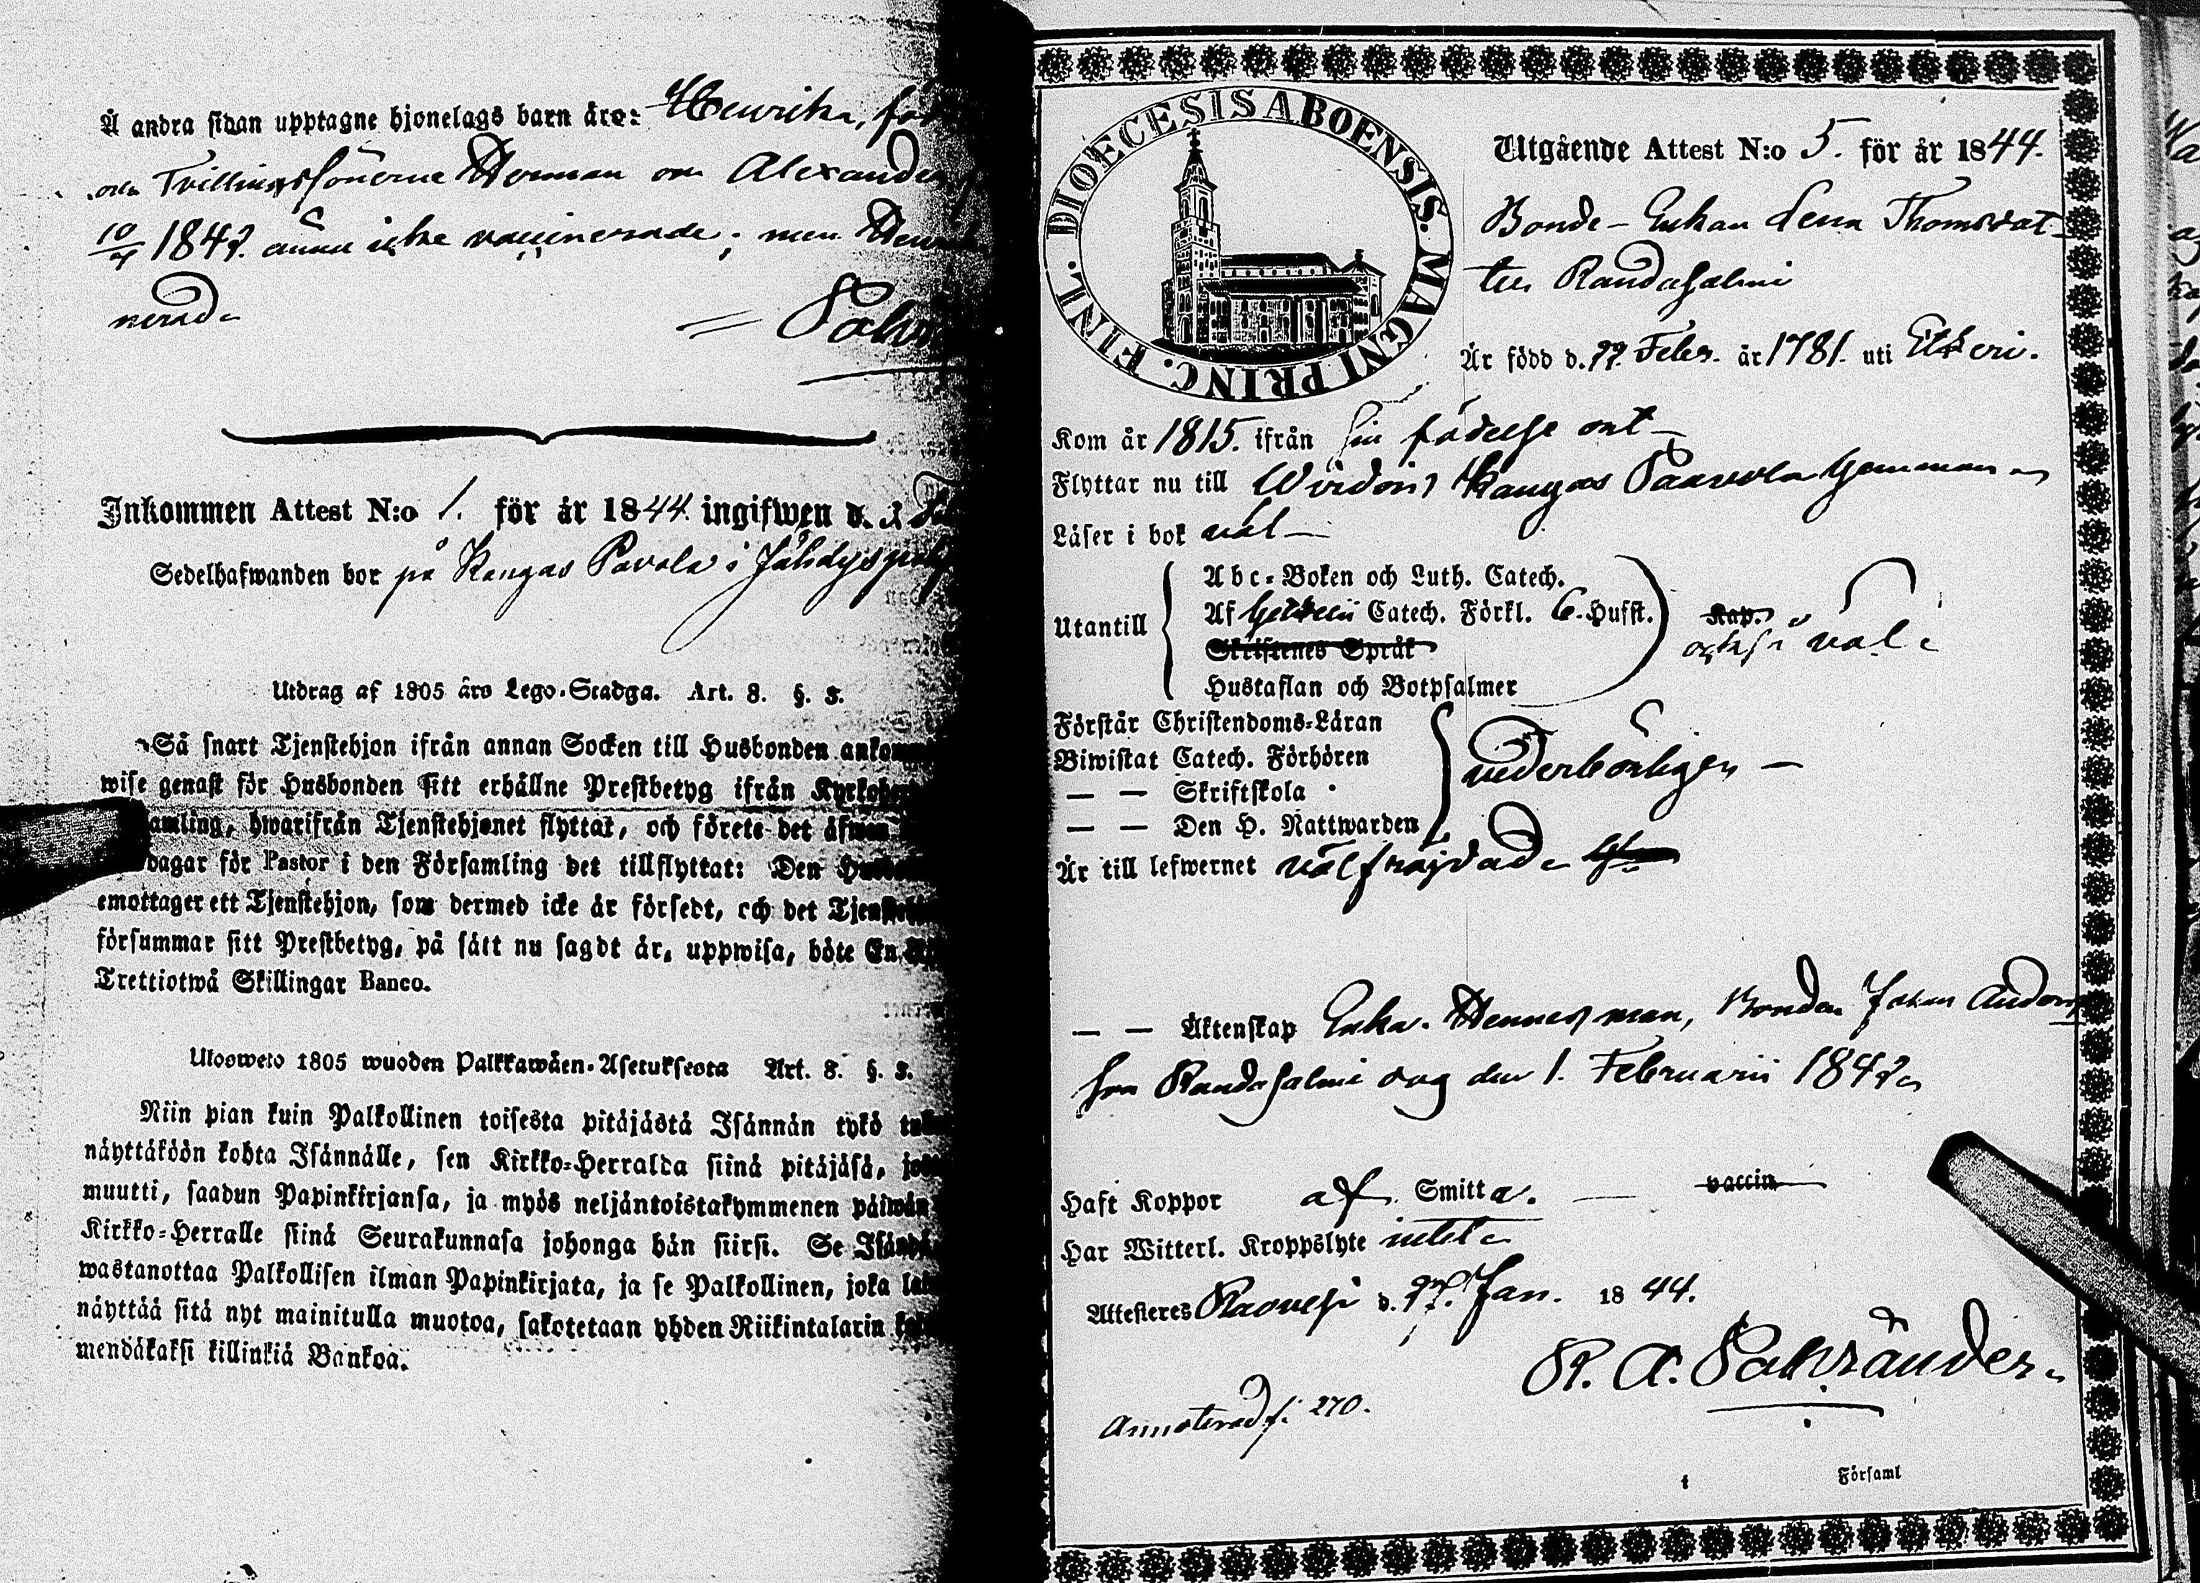 Å andra sidan upptagne hjonelags barn äro: Henrika, föd
och Trillingssönerne Herman och Alexander
10/4 1842. ännu icke vaccinerade; men Hen
nerade
Pahr
Inkommen Attest N:o 1. för år 1844. ingifwen d. 3
Sedelhafwanden bor på Kangas Pavola i Jähdyspoh
Utdrag af 1805 års Lego-Stadga. Art. 8. §. 3.
Så snart Tjenstehjon ifrån annan Socken till Husbonden ankomm
wise genast för Husbonden sitt erhållne Prestbetyg ifrån Kyrkoher
amling, hwarifrån Tjenstehjonet flyttat, och förete det äfwen
dagar för Pastor i den Församling det tillflyttat: Den Husb
emottager ett Tjenstehjon, som dermed icke är försedt, och det Tjenstehj
försummar sitt Prestbetyg, på sätt nu sagdt är, uppwisa, böte En
Trettiotwå Skillingar Banco.
Ulosweto 1805 wuoden Palkkawäen-Asetuksesta Art. 8. §. 3.
Niin pian kuin Palkollinen toisesta pitäjästä Isännän tykö tul
näyttäköön kohta Isännälle, sen Kirkko-Herralda siinä pitäjäsä, jos
muutti, saadun Papinkirjansa, ja myös neljäntoistakymmenen päiwän
Kirkko-Herralle siinä Seurakunnasa johonga hän siirsi. Se Isänd
wastanottaa Palkollisen ilman Papinkirjata, ja se Palkollinen, joka la
näyttää sitä nyt mainitulla muotoa, sakotetaan yhden Riikintalarin
mendäkaksi killinkiä Bankoa.
DIOECESIS ABOENSIS. MAGNI PRINC. FINL.
Utgående Attest N:o 5. för år 1844.
Bonde-Enkan Lena Thomsdat-
ter Randasalmi
Är född d. 22. Febr. år 1781. uti Etseri.
Kom år 1815. ifrån sin födelse ort
Flyttar nu till Wirdois Kangas Paavola hemman
Läser i bok väl
Utantill
Abc-Boken och Luth. Catech.
Af Catech. Förkl. 6. Hufst.
Kap.
också väl
Skriftenes Språk
Hustaflan och Botpsalmer
Förstår Christendoms-Läran
Biwistat Catech. Förhören
— — Skriftskola
— — Den H. Nattwarden
vederbörligen
Är till lefwernet välfräjdad
— — Äktenskap Enka. Hennes man, Bonden Johan Anders
son Randasalmi dog den 1. Februarii 1842
Haft Koppor af Smitta. — vaccin
Har Witterl. Kroppslyte intet
Attesteres Kaavesi d. 27. Jan. 1844.
Annoterad f. 270.
t Församl